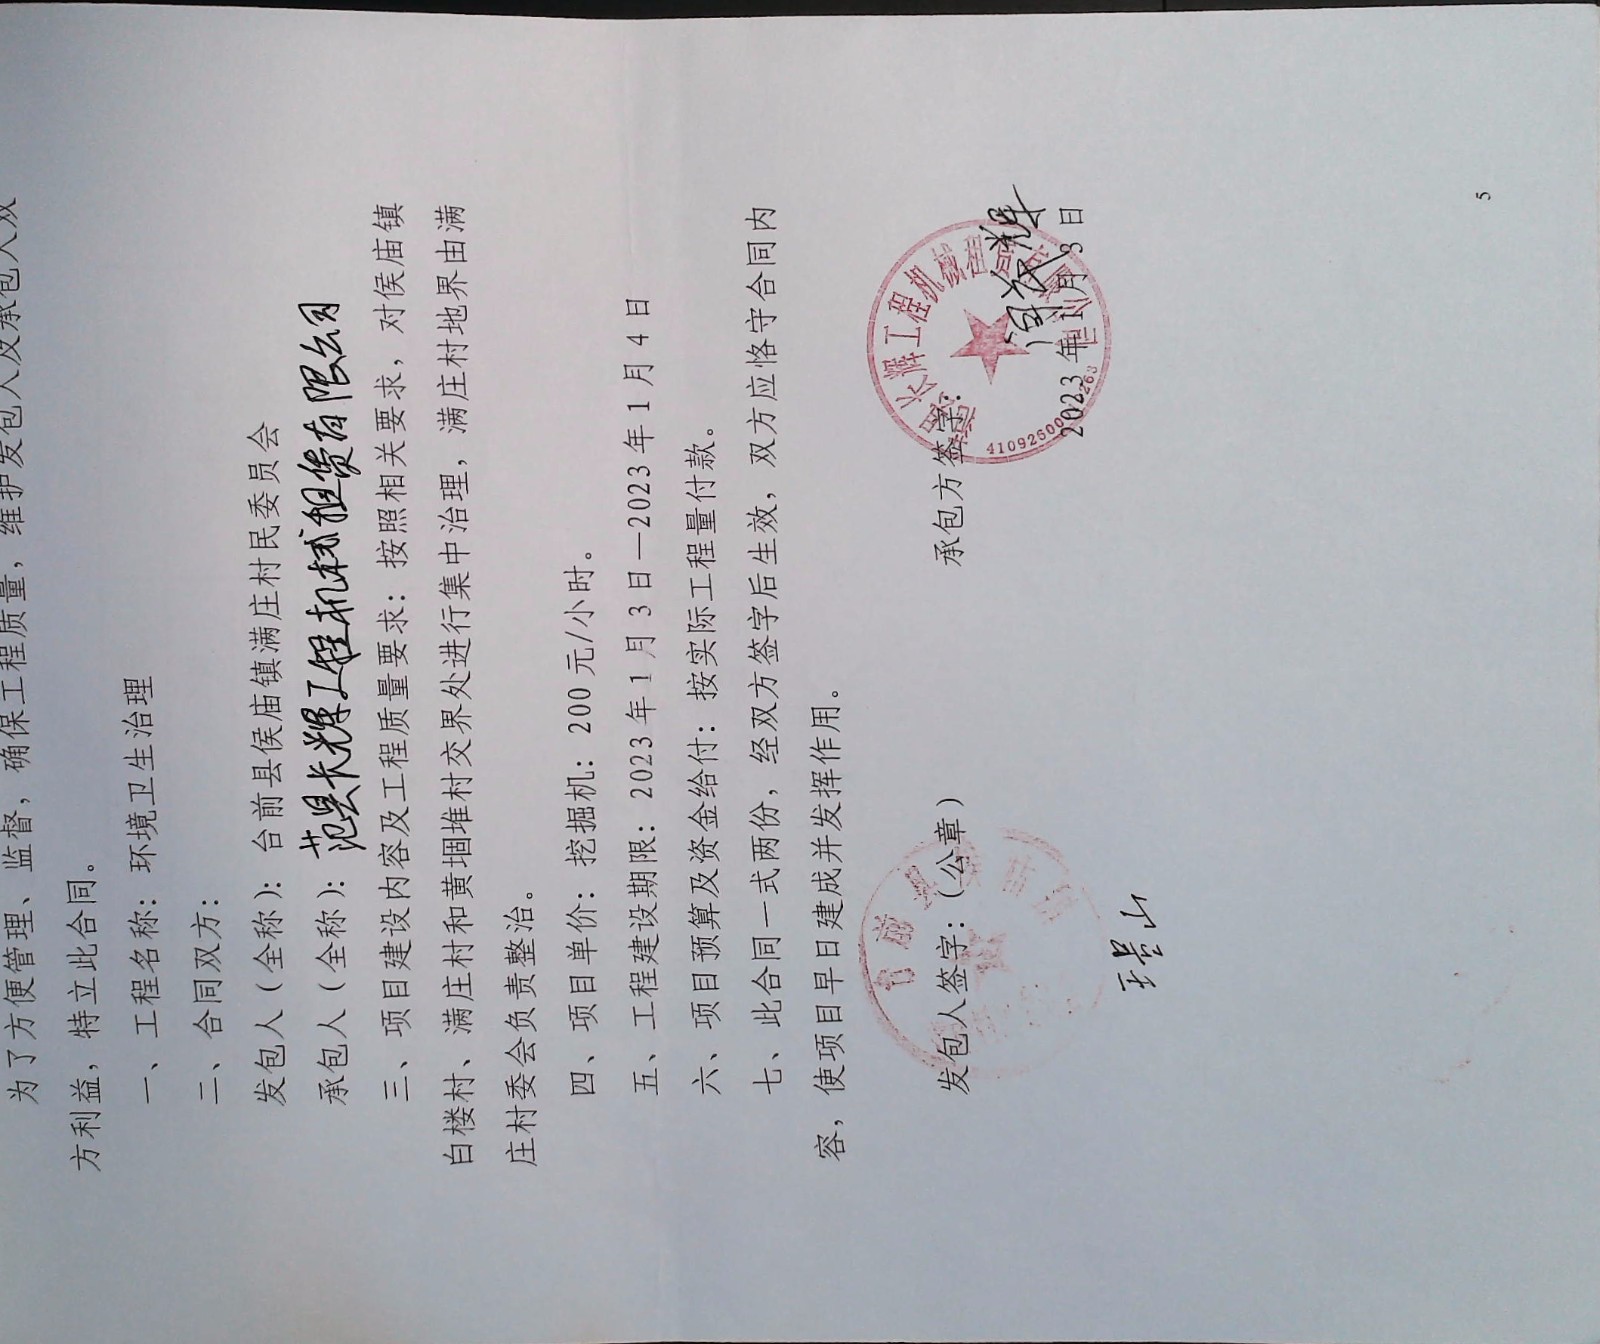 为了方便管理、监督，确保工程质量，维护发包人及承包人双
方利益，特立此合同。
一、工程名称：环境卫生治理
二、合同双方：
发包人（全称）：台前县侯庙镇满庄村民委员会
承包人（全称）：范县长辉工程机械租赁有限公司
三、项目建设内容及工程质量要求：按照相关要求，对侯庙镇
白楼村、满庄村和黄堌堆村交界处进行集中治理，满庄村地界由满
庄村委会负责整治。
四、项目单价：挖掘机：200元/小时。
五、工程建设期限：2023年1月3日—2023年1月4日
六、项目预算及资金给付：按实际工程量付款。
七、此合同一式两份，经双方签字后生效，双方应恪守合同内
容，使项目早日建成并发挥作用。
发包人签字：（公章） 承包方签字：
长辉工程机械租赁
2023年1月3日
王景山
5